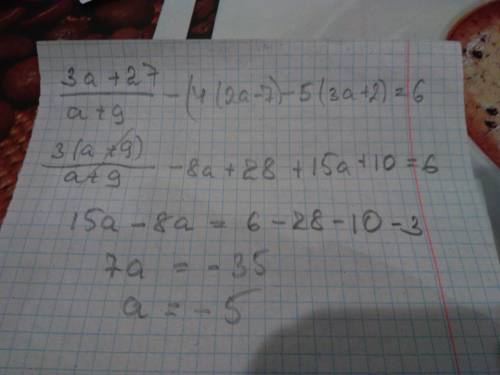 (3a+27)/(a+9) - (4(2a-7)-5(3a+2)=6
3(a+9)/(a+9) - 8a+28+15a+10=6
15a-8a = 6-28-10-3
7a = -35
a = -5